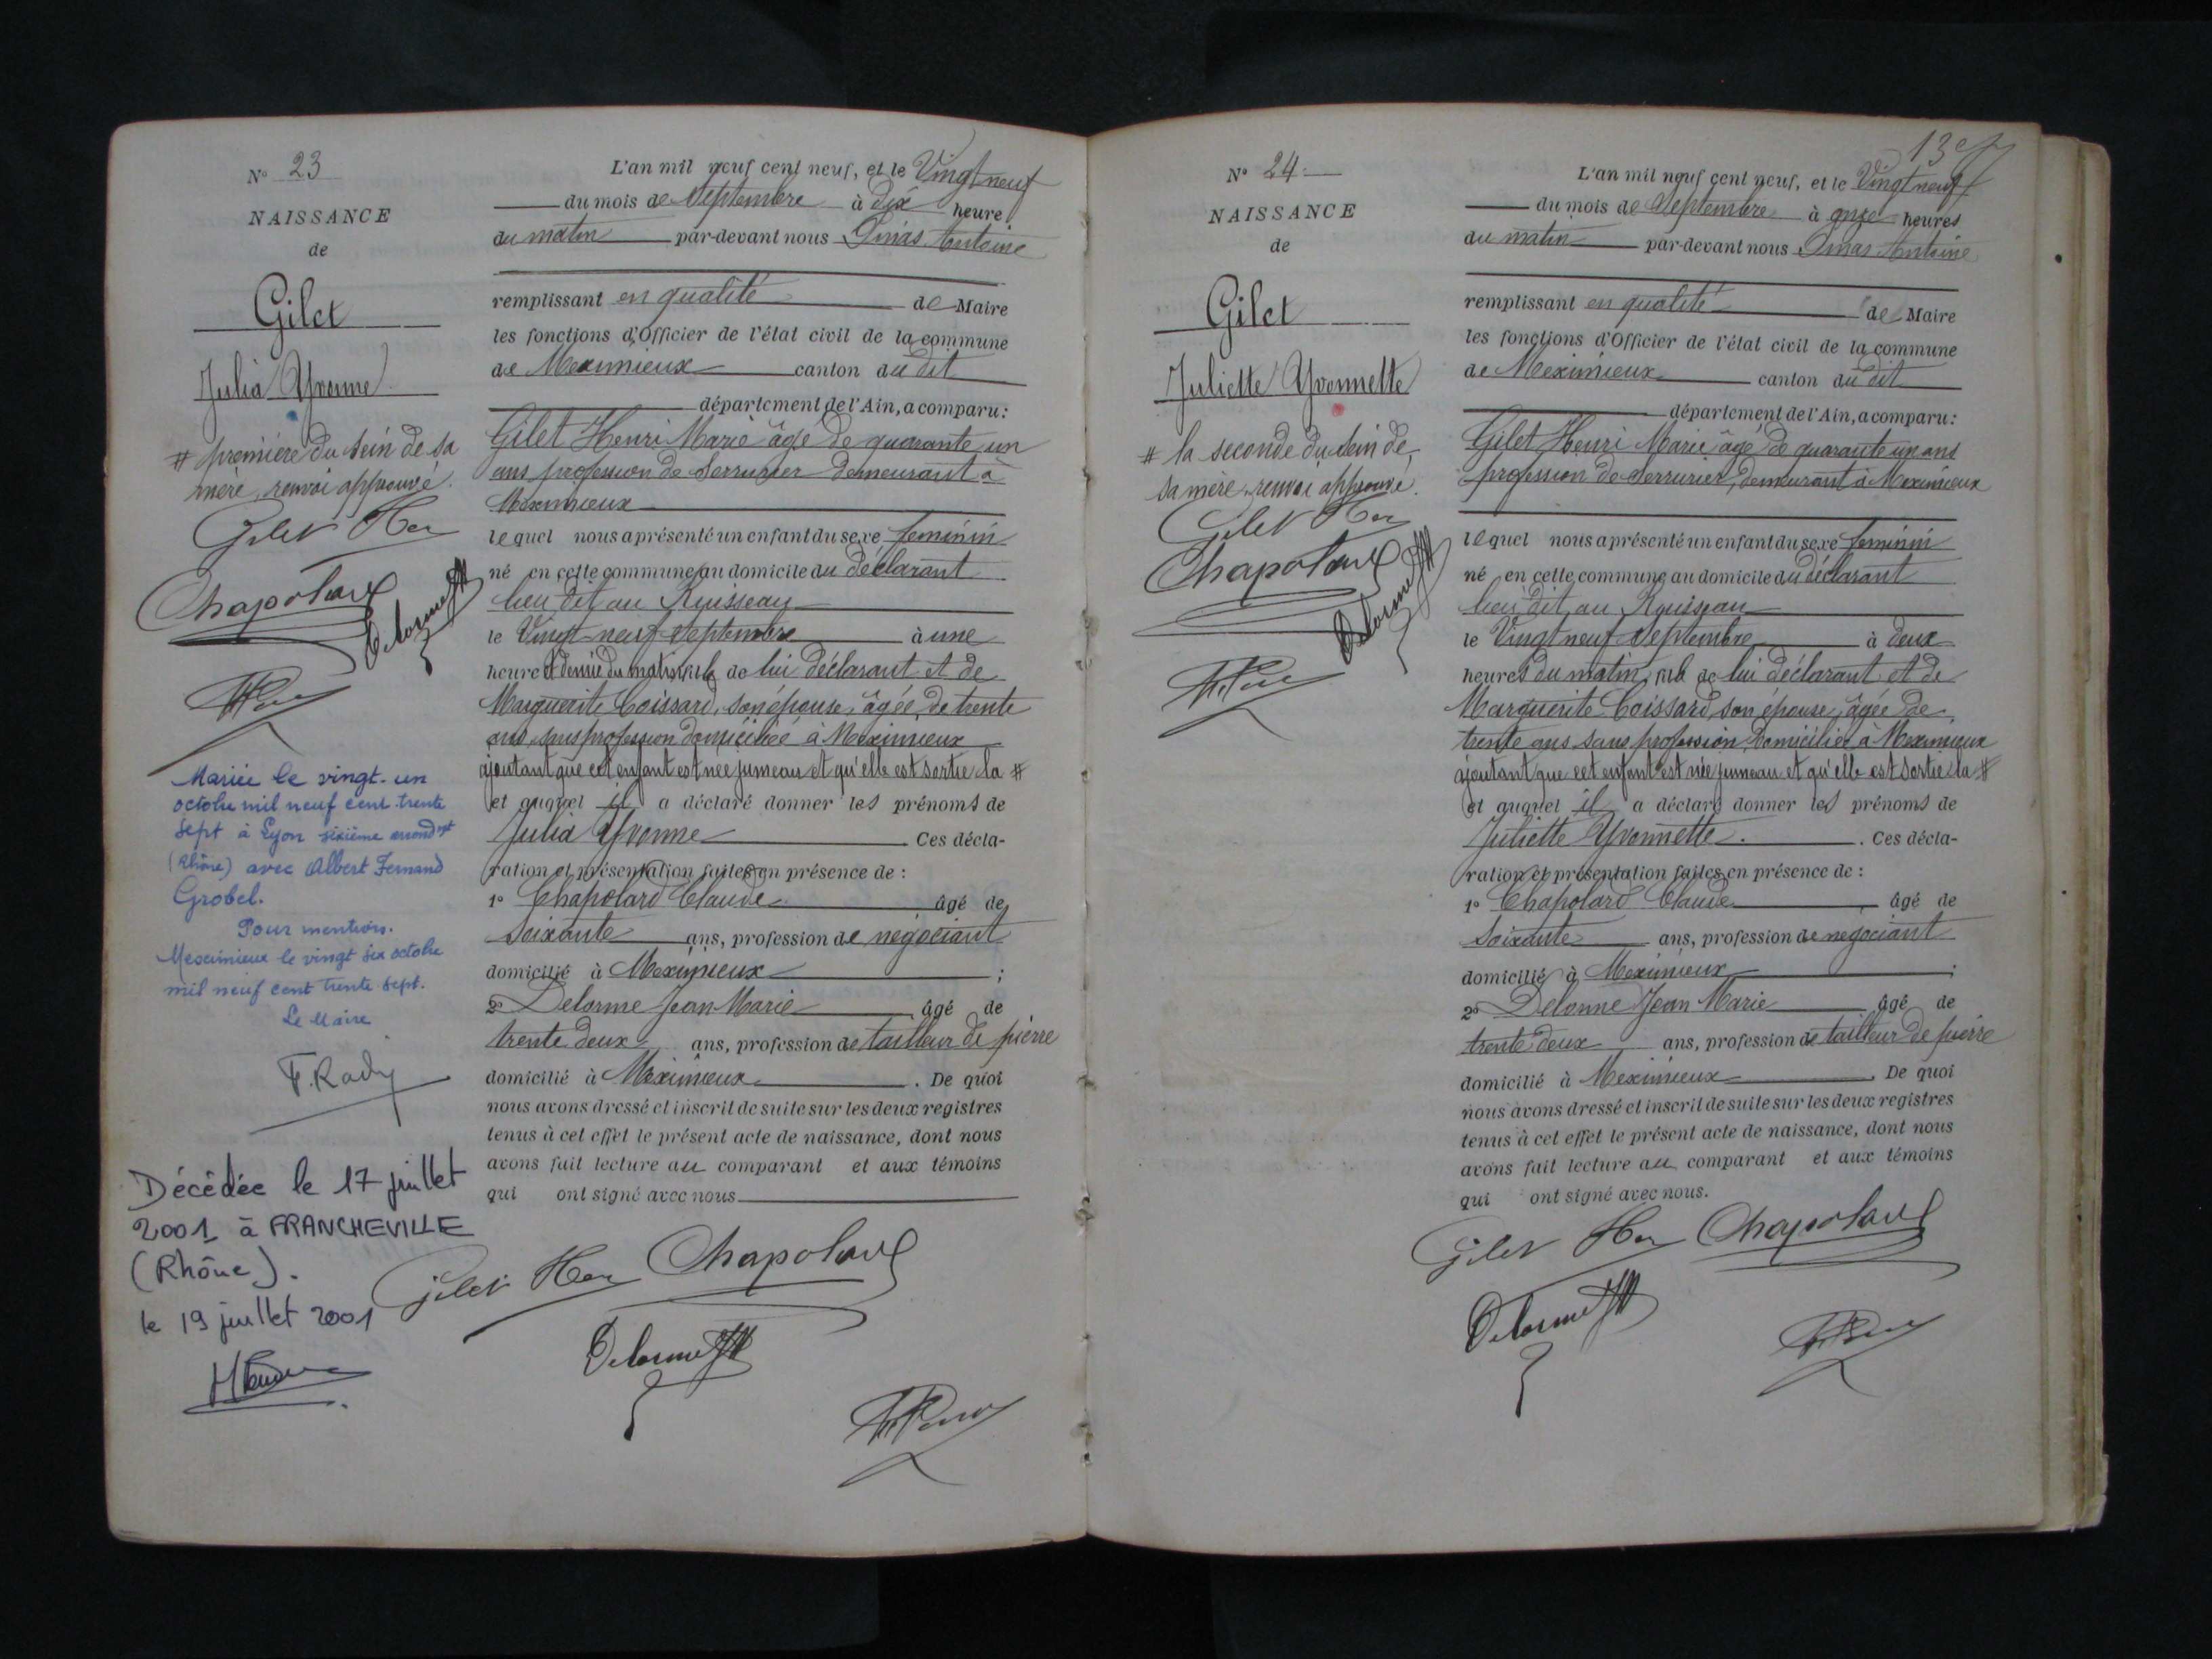 N° 23
NAISSANCE
de
Gilet
Julia Yvonne
# première du sein de sa
mère, renvoi approuvé.
Gilet Hen
Chapolard
Delorme JM
Mariée le vingt-un
octobre mil neuf cent trente
sept à Lyon sixième arrondt
(Rhône) avec Albert Fernand
Grobel.
Pour mention.
Meximieux le vingt six octobre
mil neuf cent trente sept.
Le Maire
Décédée le 17 juillet
2001 à FRANCHEVILLE
(Rhône).
le 19 juillet 2001
L'an mil neuf cent neuf, et le Vingt neuf
du mois de Septembre à dix heure
du matin par-devant nous Antoine
remplissant en qualité de Maire
les fonctions d'Officier de l'état civil de la commune
de Meximieux canton du dit
département de l'Ain, a comparu :
Gilet Henri Marie âgé de quarante un
ans profession de Serrurier demeurant à
Meximieux
lequel nous a présenté un enfant du sexe feminin
né en cette commune au domicile du déclarant
lieu dit au Ruisseau
le Vingt-neuf Septembre à une
heure et demie du matin, fils de lui déclarant et de
Marguerite Coissard, son épouse, âgée de trente
ans, sans profession domiciliée à Meximieux
ajoutant que cet enfant est née jumeau et qu'elle est sortie la #
et auquel il a déclaré donner les prénoms de
Julia Yvonne. Ces décla-
ration et présentation faites en présence de :
1° Chapolard Claude âgé de
Soixante ans, profession de négociant
domicilié à Meximieux ;
2° Delorme Jean Marie âgé de
trente deux ans, profession de tailleur de pierre
domicilié à Meximieux. De quoi
nous avons dressé et inscrit de suite sur les deux registres
tenus à cet effet le présent acte de naissance, dont nous
avons fait lecture au comparant et aux témoins
qui ont signé avec nous
Gilet Hen Chapolard
Delorme JM
13
N° 24
NAISSANCE
de
Gilet
Juliette Yvonnette
# la seconde du sein de
sa mère, renvoi approuvé.
Gilet Hen
Chapolard
Delorme JM
L'an mil neuf cent neuf, et le Vingt neuf
du mois de Septembre à onze heures
du matin par-devant nous Antoine
remplissant en qualité de Maire
les fonctions d'Officier de l'état civil de la commune
de Meximieux canton du dit
département de l'Ain, a comparu :
Gilet Henri Marie âgé de quarante un ans
profession de Serrurier, demeurant à Meximieux
lequel nous a présenté un enfant du sexe feminin
né en cette commune au domicile du déclarant
lieu dit au Ruisseau
le Vingt neuf Septembre à deux
heures du matin, fils de lui déclarant et de
Marguerite Coissard, son épouse, âgée de
trente ans sans profession domiciliée à Meximieux
ajoutant que cet enfant est née jumeau et qu'elle est sortie la #
et auquel il a déclaré donner les prénoms de
Juliette Yvonnette. Ces décla-
ration et présentation faites en présence de :
1° Chapolard Claude âgé de
Soixante ans, profession de négociant
domicilié à Meximieux ;
2° Delorme Jean Marie âgé de
trente deux ans, profession de tailleur de pierre
domicilié à Meximieux. De quoi
nous avons dressé et inscrit de suite sur les deux registres
tenus à cet effet le présent acte de naissance, dont nous
avons fait lecture au comparant et aux témoins
qui ont signé avec nous.
Gilet Hen Chapolard
Delorme JM